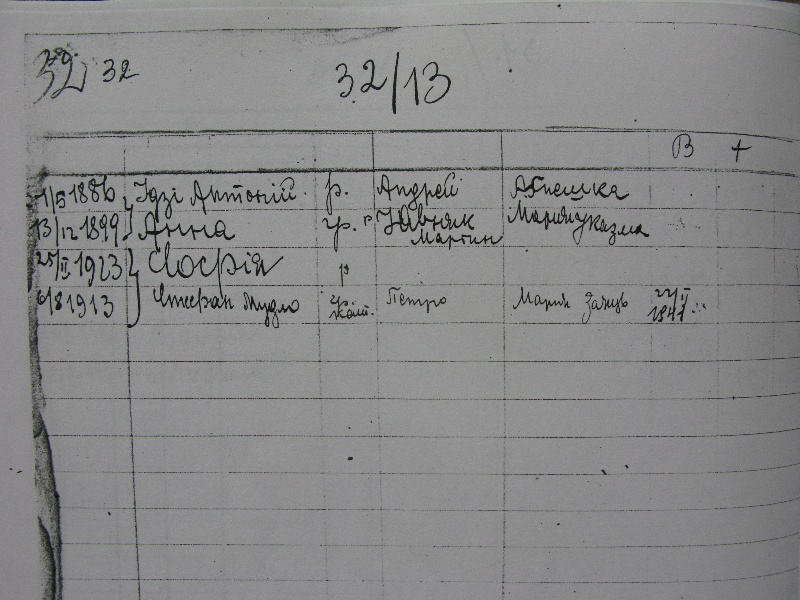 32 32 32/13
В +
1/5 1886 Ідзі Антоній р. Андрей Агнешка
13/12 1899 Анна гр. Мартин Марина
25/II 1923 Софія р
6/8 1913 Стефан Мудло гр. кат. Петро Мария Заяць 22/II 1941